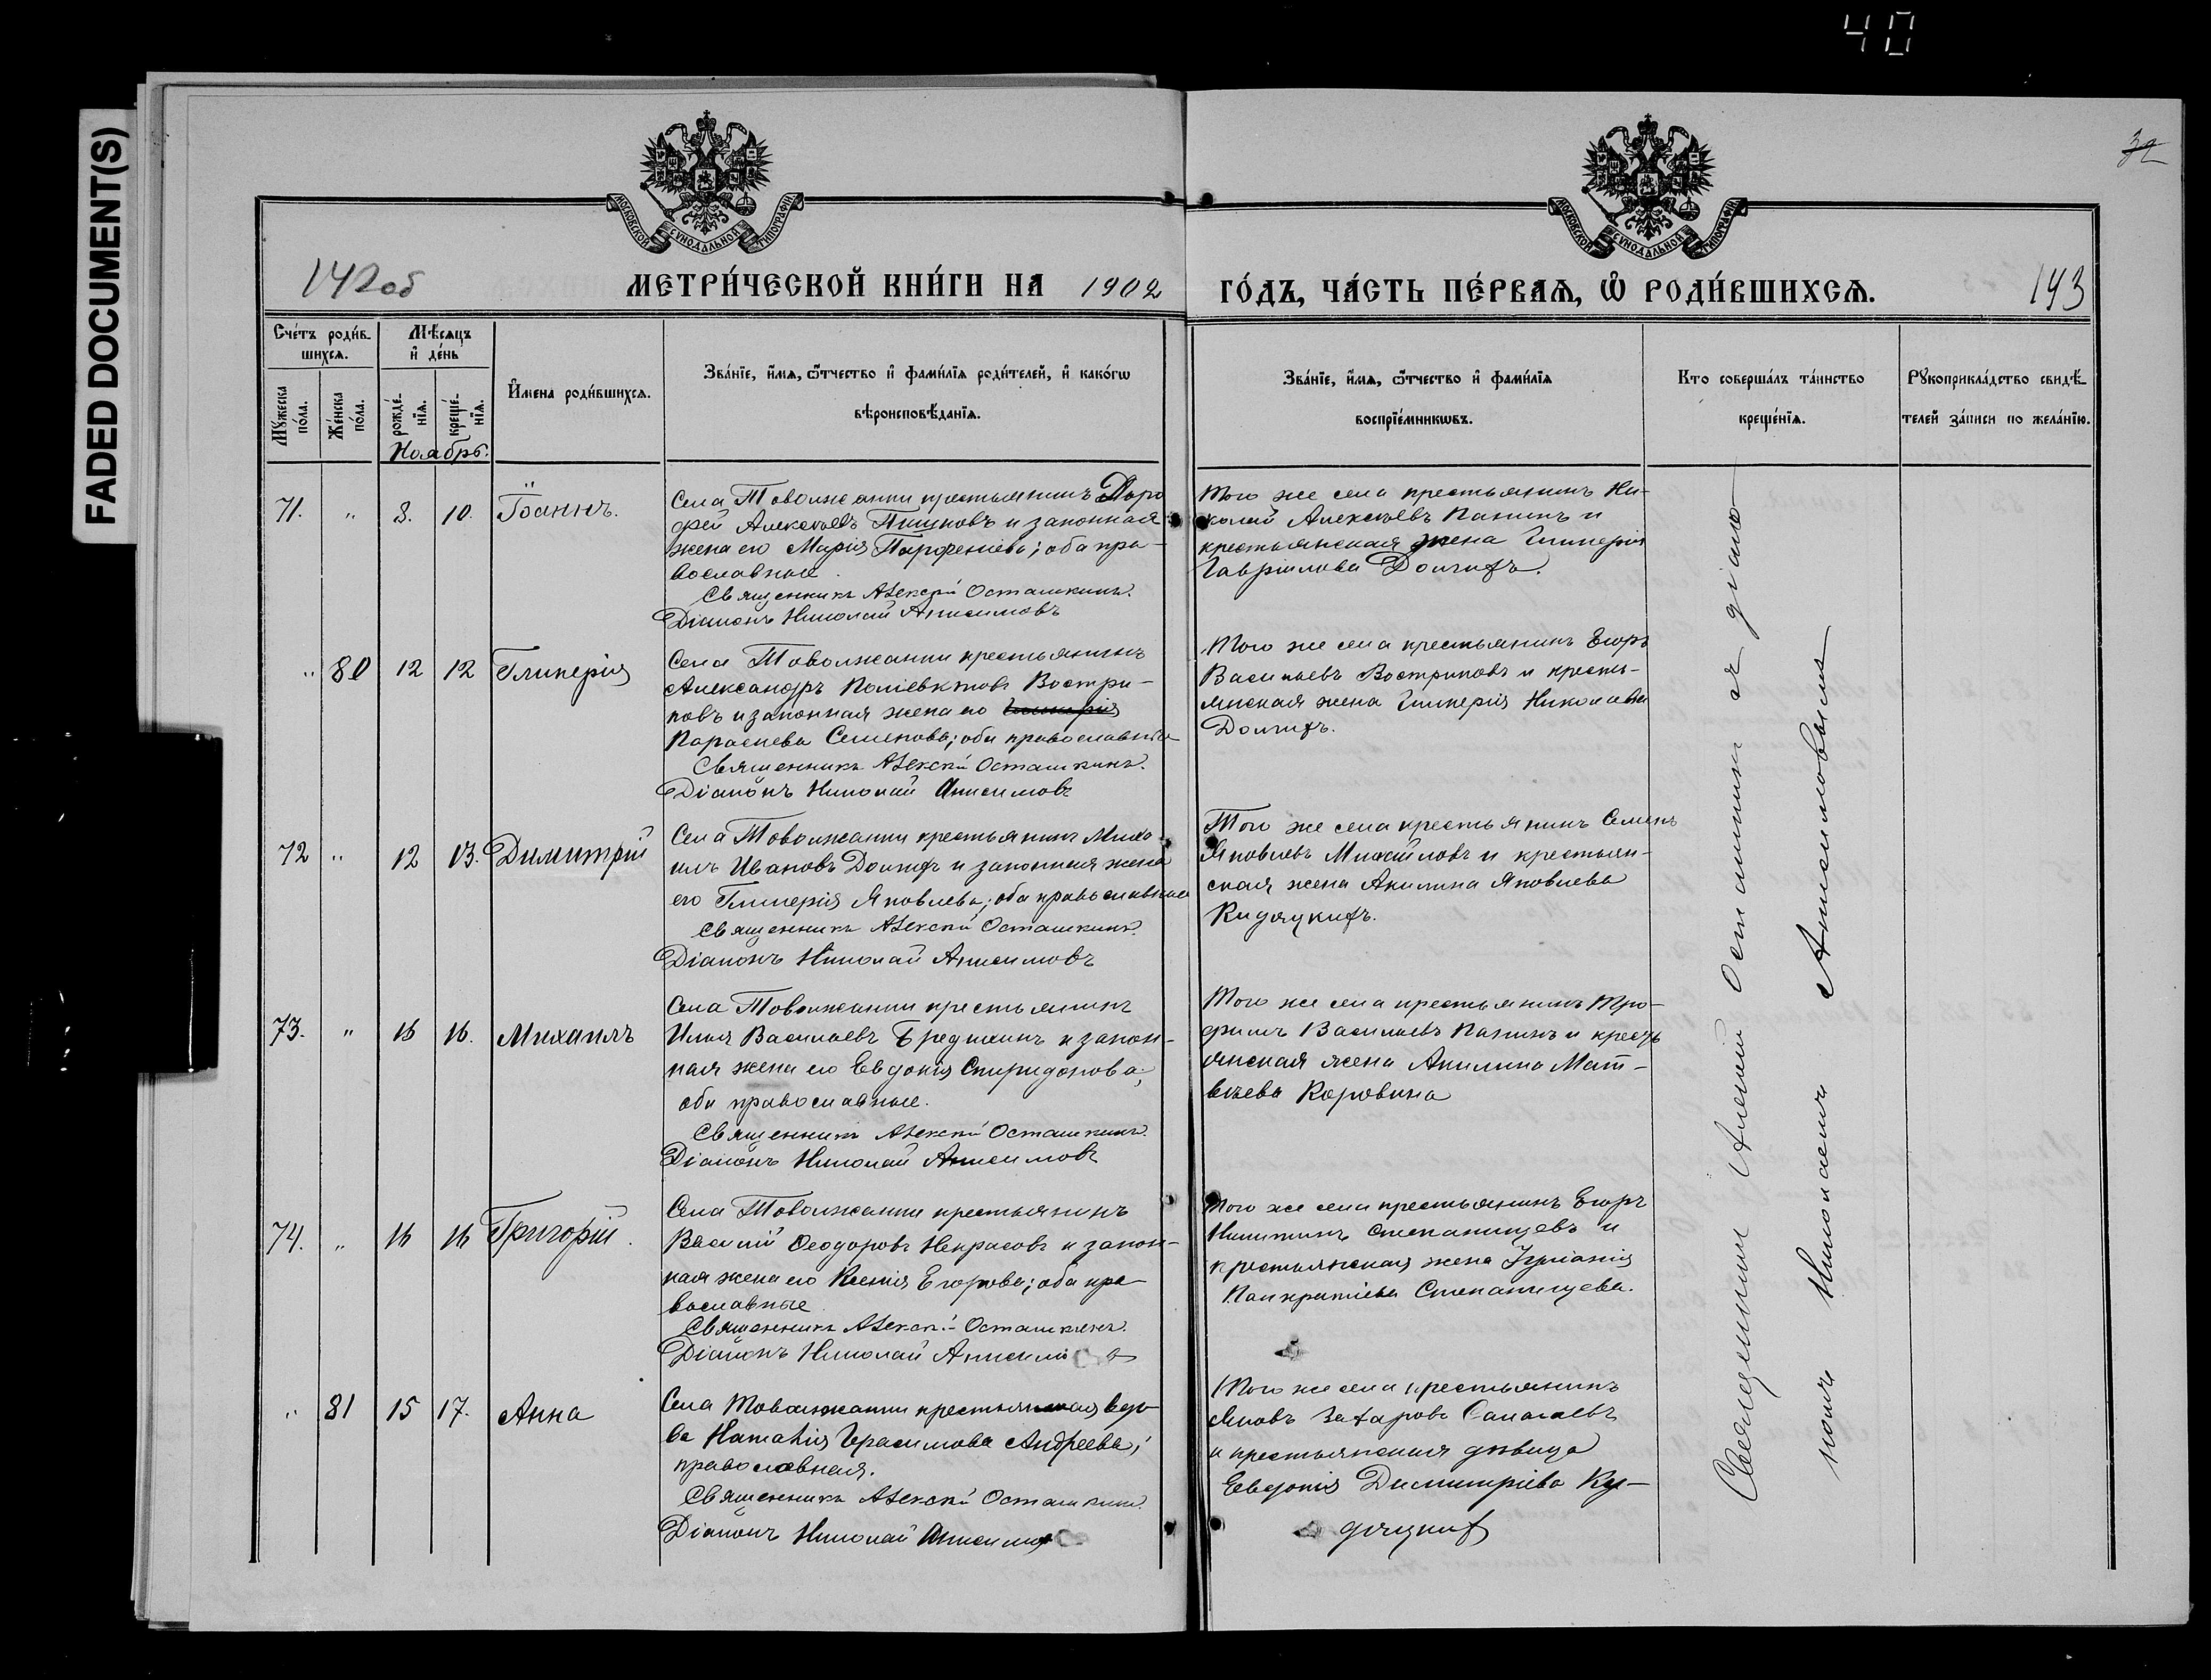 40
FADED DOCUMENT(S)
32
МОСКОВСКОЙ СѴНОДАЛЬНОЙ ТИПОГРАФІИ
МОСКОВСКОЙ СѴНОДАЛЬНОЙ ТИПОГРАФІИ
142об
МЕТРИ́ЧЕСКОЙ КНИ́ГИ НА 1902
ГО́ДЪ, ЧА́СТЬ ПЕ́РВАѦ, Ѽ РОДИ́ВШИХСѦ.
143
Сче́тъ роди́в-
шихсѧ.
Мꙋ́жеска
по́ла.
Же́нска
по́ла.
Мѣ́сѧцъ
и҆ де́нь
рожде́-
нїѧ.
креще́-
нїѧ.
Ноябрь.
И҆мена роди́вшихсѧ.
Зва́нїе, и҆́мѧ, ѻ҆́тчество и҆ фами́лїѧ роди́телей, и҆ како́гѡ
вѣроисповѣ́данїѧ.
Зва́нїе, и҆́мѧ, ѻ҆́тчество и҆ фами́лїѧ
воспрїе́мникѡвъ.
Кто соверша́лъ та́инство
креще́нїѧ.
Рꙋкоприкла́дство свидѣ́-
телей за́писи по жела́нїю.
71. " 8. 10. Іоаннъ.
Села Товолжанки крестьянинъ Доро
фей Алексѣевъ Пищуковъ и законная
жена его Марія Парфеніева; оба пра-
вославные.
Священникъ Алексѣй Осташкинъ.
Діаконъ Николай Анисимовъ
Того же села крестьянинъ Ни-
колай Алексѣевъ Панинъ и
крестьянская жена Гликерія
Гавріилова Долгихъ.
" 80 12 12 Гликерія
Села Товолжанки крестьянинъ
Александръ Поліевктовъ Востри-
ковъ и законная жена его Гликерія
Параскева Семенова; оба православные
Священникъ Алексѣй Осташкинъ.
Діаконъ Николай Анисимовъ
Того же села крестьянинъ Егоръ
Васильевъ Востриковъ и кресть-
янская жена Гликерія Николаева
Долгихъ.
72 " 12 13. Димитрій
Села Товолжанки крестьянинъ Миха
илъ Ивановъ Долгихъ и законная жена
его Гликерія Яковлева; оба православные
Священникъ Алексѣй Осташкинъ.
Діаконъ Николай Анисимовъ
Того же села крестьянинъ Семенъ
Яковлевъ Михайловъ и крестьян-
ская жена Акилина Яковлева
Кидяцкихъ.
73. " 16 16. Михаилъ
Села Товолжанки крестьянинъ
Илья Васильевъ Бредихинъ и закон-
ная жена его Евдокія Спиридонова;
оба православные.
Священникъ Алексѣй Осташкинъ.
Діаконъ Николай Анисимовъ
Того же села крестьянинъ Тро-
фимъ Васильевъ Панинъ и кресть
янская жена Акилина Мат-
вѣева Коровина
74. " 16 16 Григорій.
Села Товолжанки крестьянинъ
Василій Ѳеодоровъ Некрасовъ и закон-
ная жена его Ксенія Егорова; оба пра-
вославные
Священникъ Алексѣй Осташкинъ.
Діаконъ Николай Анисимовъ
Того же села крестьянинъ Егоръ
Никитинъ Степанищевъ и
крестьянская жена Іуліанія
Панкратіева Степанищева.
" 81 15 17. Анна
Села Товолжанки крестьянская вдо-
ва Наталія Герасимова Андреева;
православная.
Священникъ Алексѣй Осташкинъ.
Діаконъ Николай Анисимов
Того же села крестьянинъ
Яковъ Захаровъ Сапа
и крестьянская дѣвица
Евдокія Димитріева Ку-
дяцких
Священникъ Алексій Осташкинъ съ діако-
номъ Николаемъ Анисимовымъ